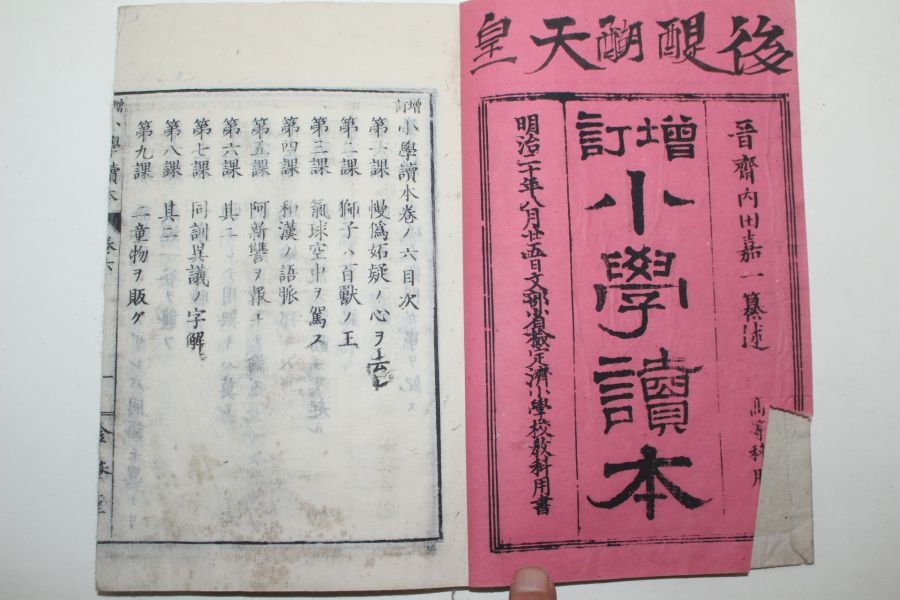 後醍醐天皇
晉齋内田嘉一纂述
高等科用
增訂
小學讀本
明治二十年八月廿五日文部省檢定濟小學校教科用書
增訂小學讀本卷ノ六目次
第一課 慢僞妬疑ノ心ヲ去ル
第二課 獅子ハ百獸ノ王
第三課 氣球空中ヲ駕ス
第四課 和漢ノ語脈
第五課 阿新讐ヲ報ユ
第六課 其二
第七課 同訓異議ノ字解
第八課 其二
第九課 二童物ヲ販グ
增訂小學讀本 卷六